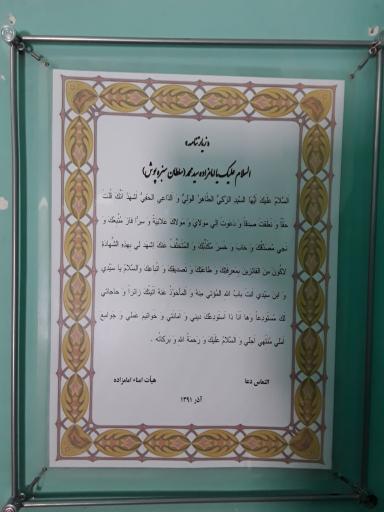 «زیارتنامه»
السلام علیک یا امامزاده سید محمد (سلطان سبزه پوش)
السَّلامُ عَلَیْكَ اَیُّهَا السَّیِّدُ الزَّكِيُّ الطّاهِرُ الْوَلِيُّ وَ الدّاعِي الْحَفِيُّ اَشْهَدُ اَنَّكَ قُلْتَ
حَقّاً وَ نَطَقْتَ صِدْقاً وَ دَعَوْتَ اِلي مَوْلايَ وَ مَوْلاكَ عَلانِیَةً وَ سِرّاً فازَ مُتَّبِعُكَ وَ
نَجي مُصَدِّقُكَ وَ خابَ وَ خَسِرَ مُكَذِّبُكَ وَ الْمُتَخَلِّفُ عَنْكَ اِشْهَدْ لي بِهذِهِ الشَّهادَةِ
لِاَكُونَ مِنَ الْفائِزینَ بِمَعْرِفَتِكَ وَ طاعَتِكَ وَ تَصْدیقِكَ وَ اتِّباعِكَ وَالسَّلامُ یا سَیِّدي
وَ ابْنَ سَیِّدي اَنْتَ بابُ اللهِ الْمُؤْتي مِنْهُ وَ الْمَأْخُوذُ عَنْهُ اَتَیْتُكَ زائِراً وَ حاجاتي
لَكَ مُسْتَوْدِعاً وَها اَنَا ذا اَسْتَوْدِعُكَ دیني وَ اَمانَتي وَ خَواتیمَ عَمَلي وَ جَوامِعَ
اَمَلي اِلي مُنْتَهي اَجَلي وَ السَّلامُ عَلَیْكَ وَ رَحْمَةُ اللهِ وَ بَرَكاتُهُ .
التماس دعا
هیأت امناء امامزاده
آذر ۱۳۹۱